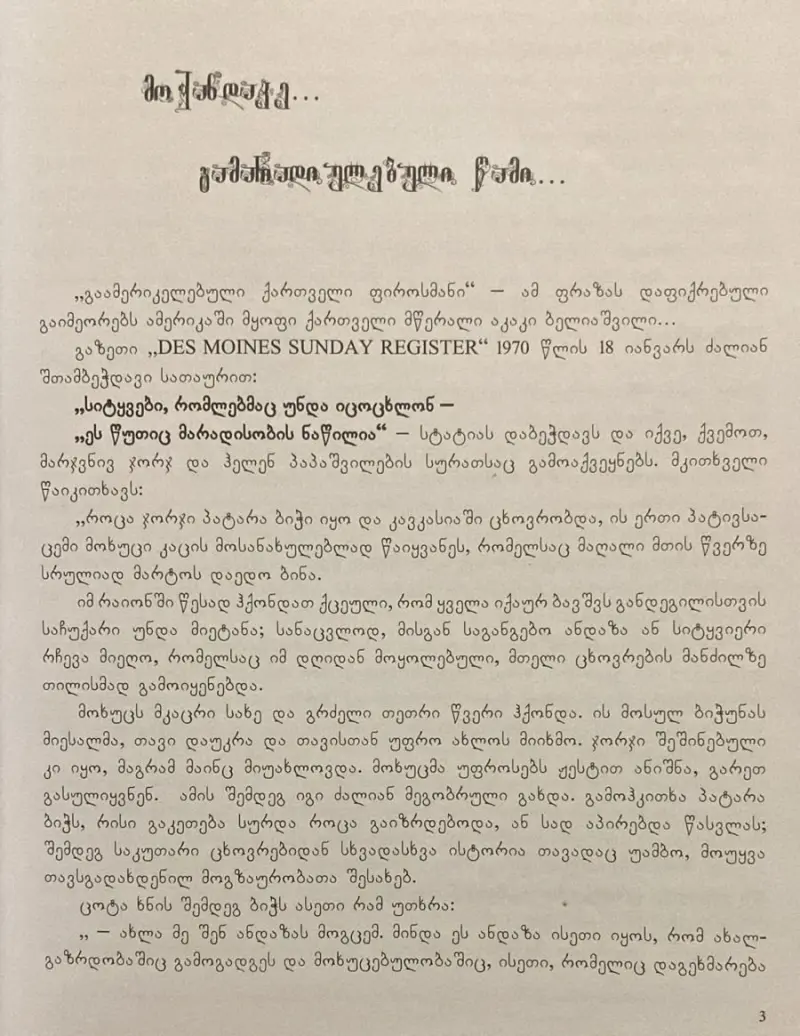 მოქანდაკე...
გამარადიულებული წამი...
„გაამერიკელებული ქართველი ფიროსმანი“ – ამ ფრაზას დაფიქრებული
გაიმეორებს ამერიკაში მყოფი ქართველი მწერალი აკაკი ბელიაშვილი...
გაზეთი „DES MOINES SUNDAY REGISTER“ 1970 წლის 18 იანვარს ძალიან
შთამბეჭდავი სათაურით:
„სიტყვები, რომლებმაც უნდა იცოცხლონ –
„ეს წუთიც მარადისობის ნაწილია“ – სტატიას დაბეჭდავს და იქვე, ქვემოთ,
მარჯვნივ ჯორჯ და ჰელენ პაპაშვილების სურათსაც გამოაქვეყნებს. მკითხველი
წაიკითხავს:
„როცა ჯორჯი პატარა ბიჭი იყო და კავკასიაში ცხოვრობდა, ის ერთი პატივსა-
ცემი მოხუცი კაცის მოსანახულებლად წაიყვანეს, რომელსაც მაღალი მთის წვერზე
სრულიად მარტოს დაედო ბინა.
იმ რაიონში წესად ჰქონდათ ქცეული, რომ ყველა იქაურ ბავშვს განდეგილისთვის
საჩუქარი უნდა მიეტანა; სანაცვლოდ, მისგან საგანგებო ანდაზა ან სიტყვიერი
რჩევა მიეღო, რომელსაც იმ დღიდან მოყოლებული, მთელი ცხოვრების მანძილზე
თილისმად გამოიყენებდა.
მოხუცს მკაცრი სახე და გრძელი თეთრი წვერი ჰქონდა. ის მოსულ ბიჭუნას
მიესალმა, თავი დაუკრა და თავისთან უფრო ახლოს მიიხმო. ჯორჯი შეშინებული
კი იყო, მაგრამ მაინც მიუახლოვდა. მოხუცმა უფროსებს ჟესტით ანიშნა, გარეთ
გასულიყვნენ. ამის შემდეგ იგი ძალიან მეგობრული გახდა. გამოჰკითხა პატარა
ბიჭს, რისი გაკეთება სურდა როცა გაიზრდებოდა, ან სად აპირებდა წასვლას;
შემდეგ საკუთარი ცხოვრებიდან სხვადასხვა ისტორია თავადაც უამბო, მოუყვა
თავსგადახდენილ მოგზაურობათა შესახებ.
ცოტა ხნის შემდეგ ბიჭს ასეთი რამ უთხრა:
„ – ახლა მე შენ ანდაზას მოგცემ. მინდა ეს ანდაზა ისეთი იყოს, რომ ახალ-
გაზრდობაშიც გამოგადგეს და მოხუცებულობაშიც, ისეთი, რომელიც დაგეხმარება
3